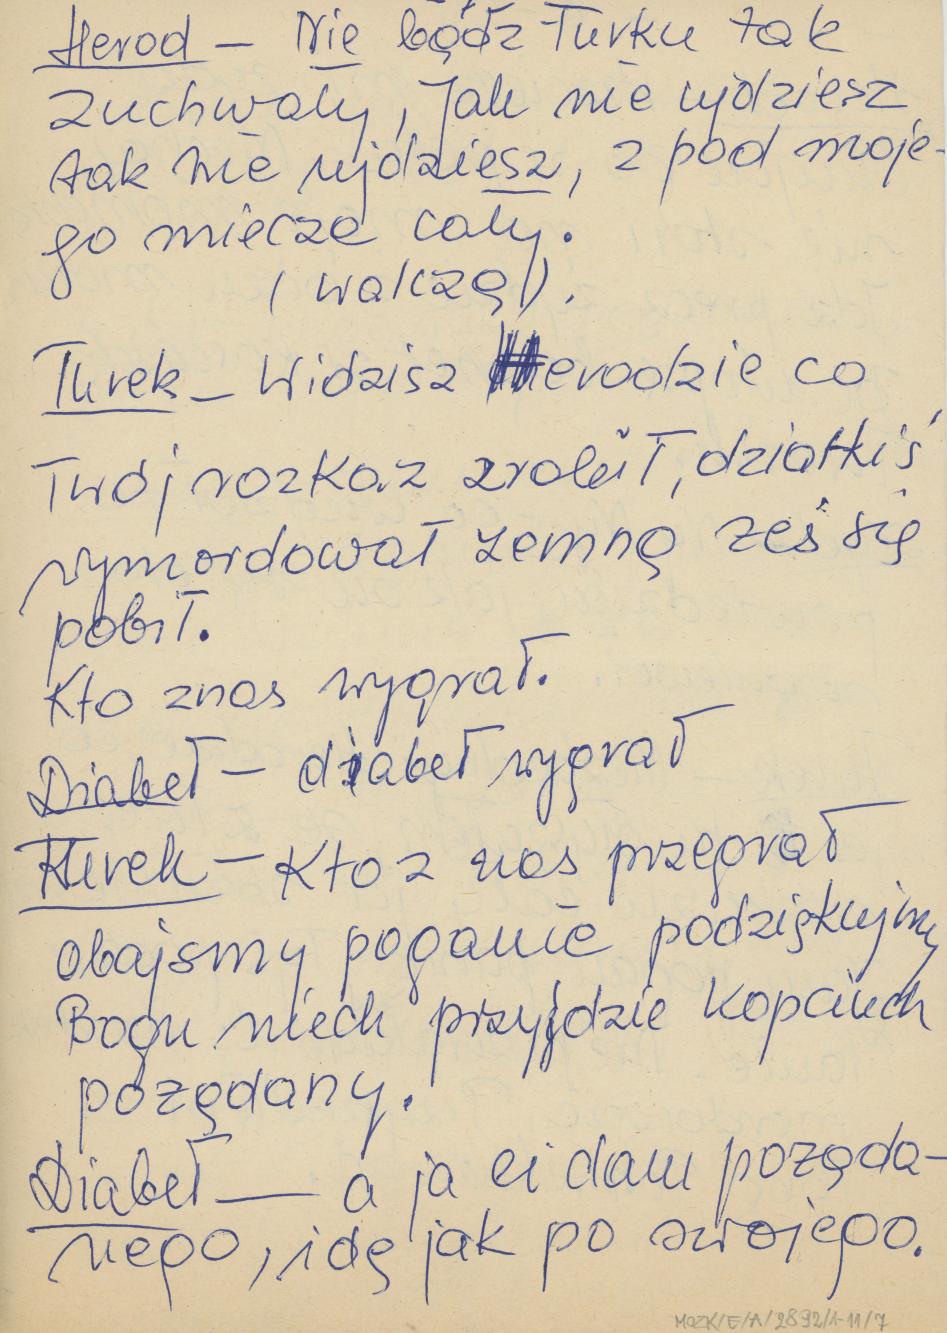 Herod – Nie bądź Turku tak
zuchwały, Jak nie ujdziesz
tak nie ujdziesz, z pod moje-
go miecze cały.
(walczą).
Turek – Widzisz Herodzie co
Twój rozkaz zrobił, dziatkiś
wymordował zemnąześ się
pobił.
Kto znas wygrał.
Diabeł – diabeł wygrał
Turek – Kto z nas przegrał
obajsmy poganie podziękujmy
Bogu niech przyjdzie Kopciuch
pozędany.
Diabeł – a ja ci dam pozęda-
nego, idę jak po swojego.
MOZK/E/A/2892/1-11/7